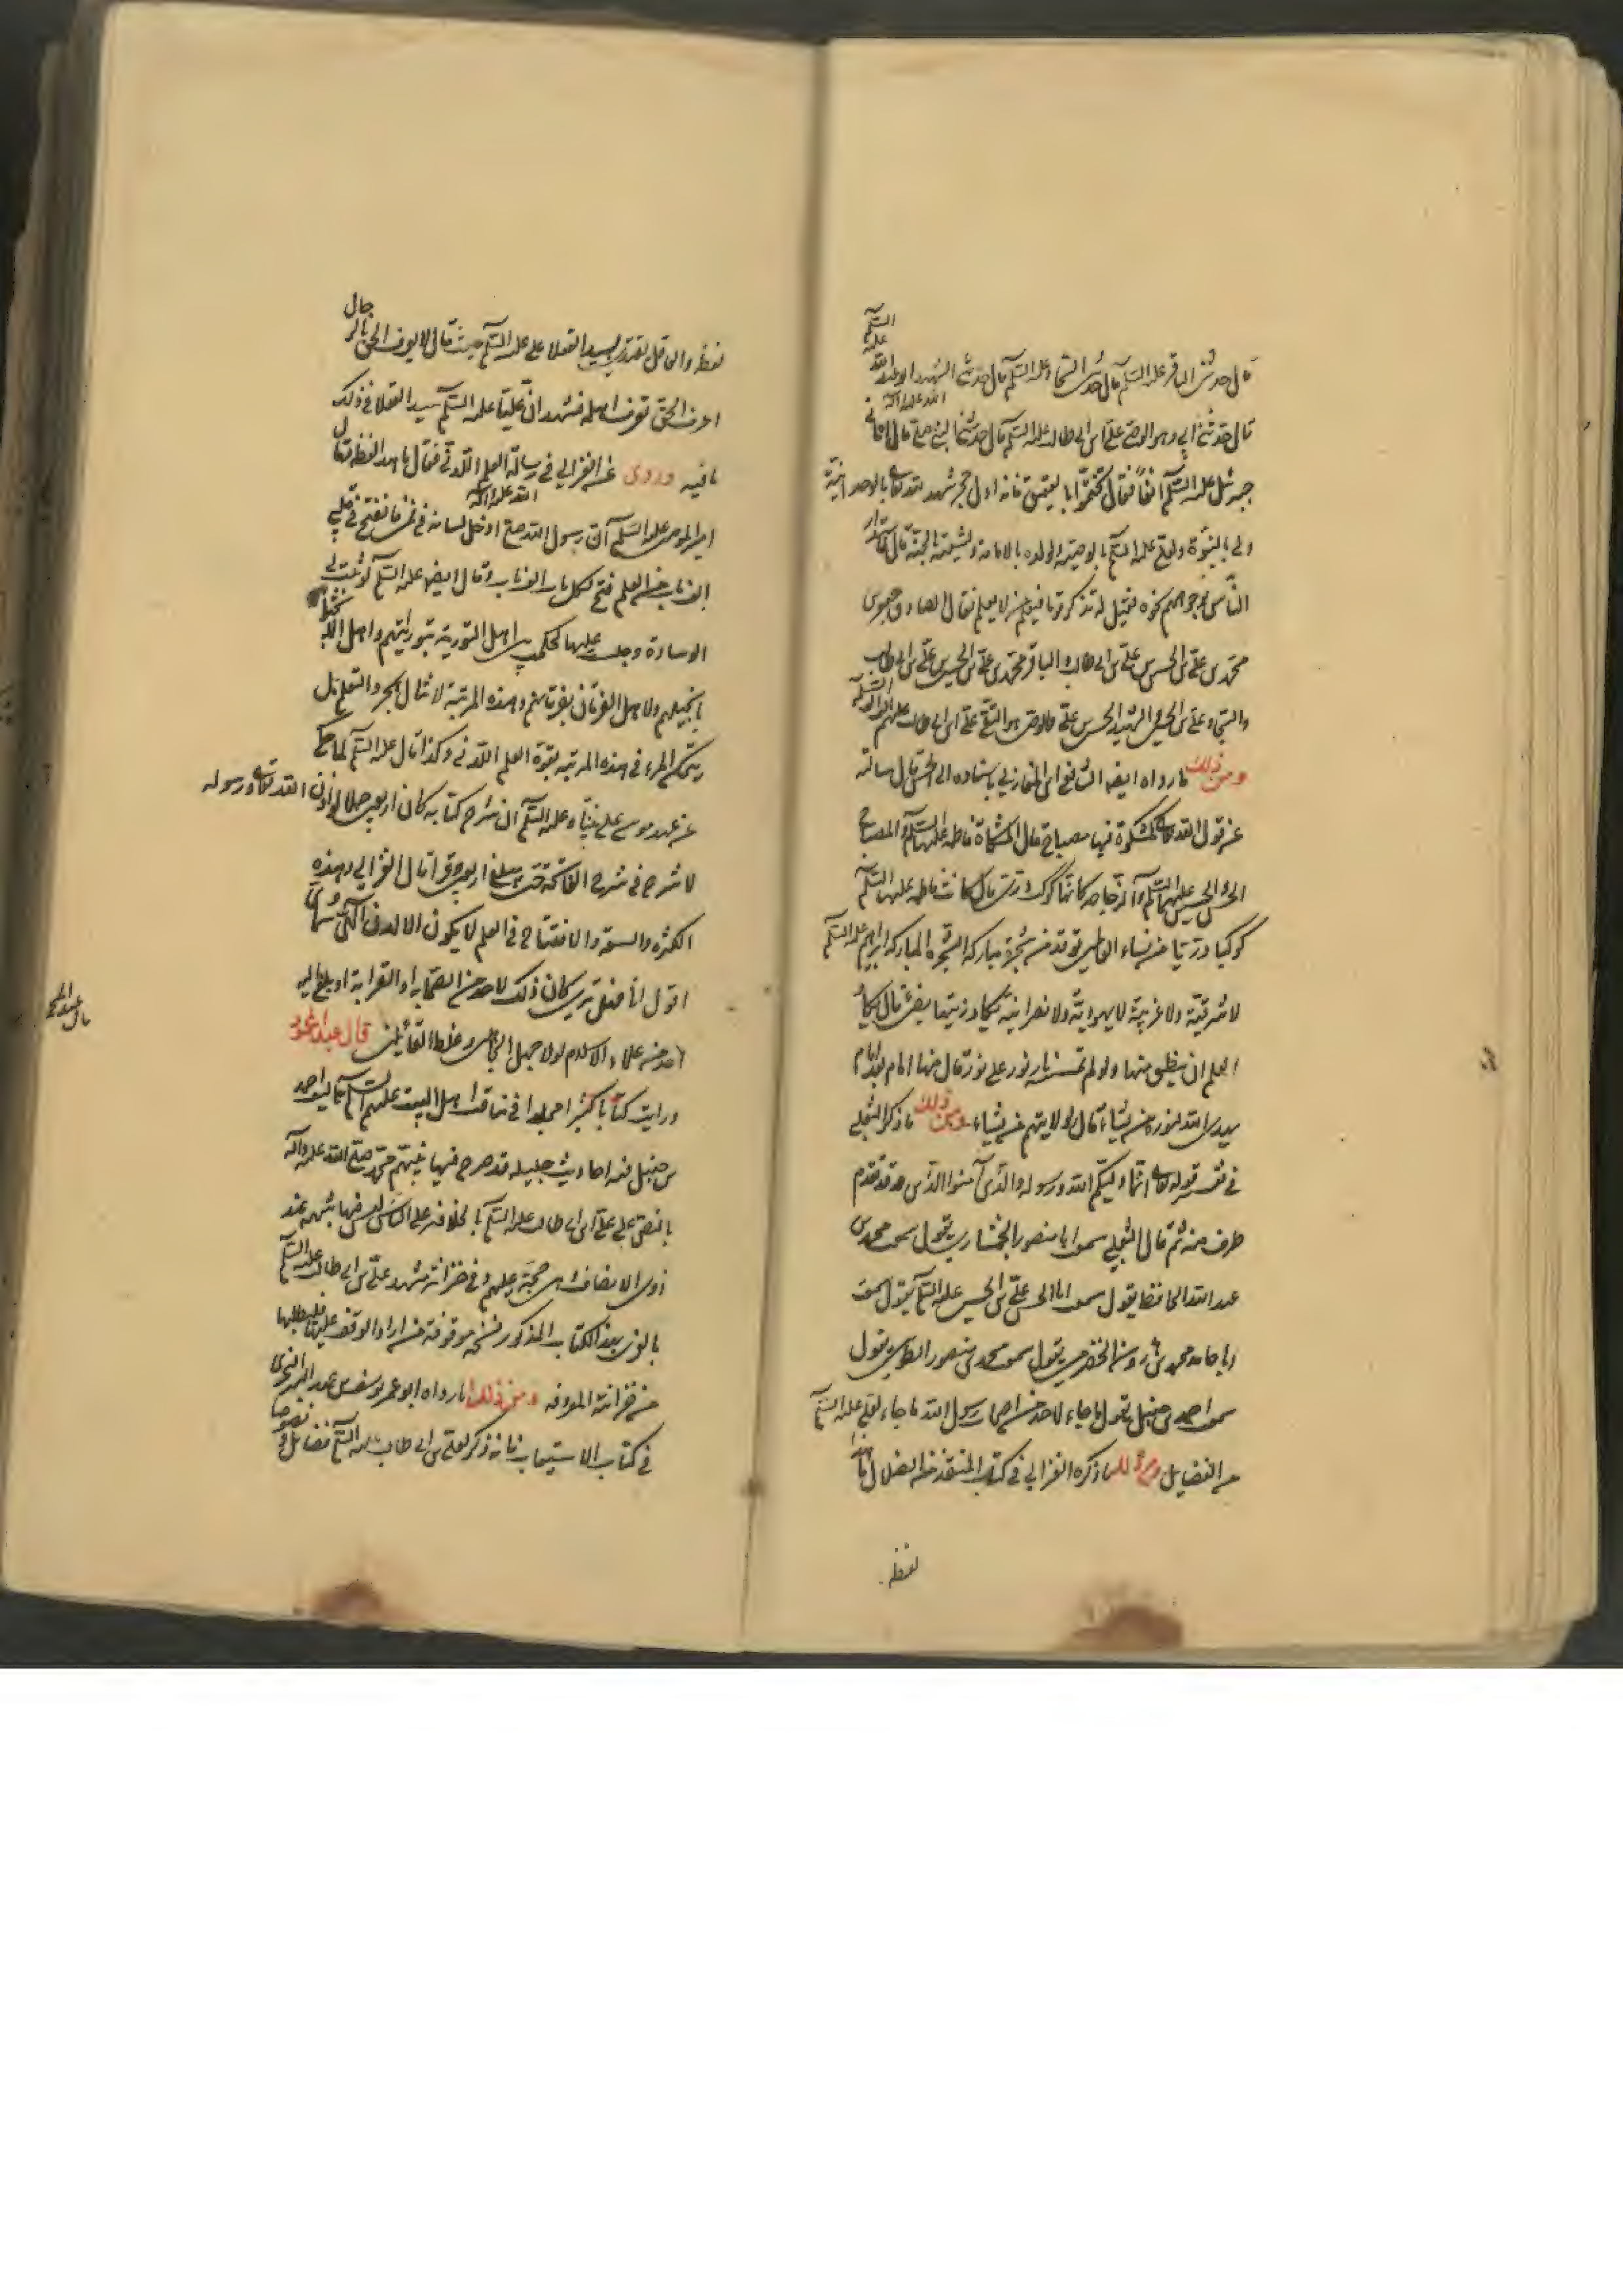 قال حدثنى الباقر عليه السلم قال حدثنى السجاد عليه السلم قال حدثنى الشهيد ابو عبدالله عليه السلم
قال حدثنى ابى وهو الوصى على ابن ابى طالب عليه السلم قال حدثنى النبى صلى الله عليه وآله قال اتانى
جبرئيل عليه السلم آنفا فقال تختموا بالعقيق فانه اول حجر شهد لله تعالى بالوحدانية
ولى بالنبوة ولعلى عليه السلم بالوصية ولولده بالامامة ولشيعته بالجنة قال فاستدار
الناس بوجوههم نحوه فقيل له تذكر قوما فنعلم من لا نعلم فقال الصادق جعفر بن
محمد بن على بن الحسين بن على بن ابى طالب والباقر محمد بن على بن الحسين بن على بن ابى طالب
والسجاد على بن الحسين والشهيد الحسين بن على والوصى هو التقى على ابن ابى طالب عليهم السلم
ومن ذلك ما رواه ايضا الشافعى ابن المغازلى باسناده الى الحسن قال سالته
عن قول الله تعالى كمشكوة فيها مصباح قال المشكاة فاطمه عليها السلم والمصباح
الحسن والحسين عليهما السلم والزجاجه كانها كوكب درى قال كانت فاطمه عليها السلم
كوكبا دريا من نساء العالمين توقد من شجرة مباركه الشجرة المباركه ابراهيم عليه السلم
لا شرقية ولا غربية لا يهودية ولا نصرانية يكاد زيتها يضئ قال يكاد
العلم ان ينطق منها ولو لم تمسسه نار نور على نور قال منها امام بعد امام
يهدى الله لنوره من يشاء قال لولايتهم من يشاء ومن ذلك ما ذكر الثعلبى
فى تفسير قوله تعالى انما وليكم الله ورسوله والذين آمنوا الذين وقد تقدم
طرف منه ثم قال الثعلبى سمعت ابا منصور الجمشادى يقول سمعت محمد بن
عبد الله الحافظ يقول سمعت ابا الحسن على بن الحسن عليه السلم يقول سمعت
ابا حامد محمد بن هرون الحضرمى يقول سمعت محمد بن منصور الطوسى يقول
سمعت احمد بن حنبل يقول ما جاء لاحد من اصحاب رسول الله ما جاء لعلى عليه السلم
من الفضايل ومن ذلك ما ذكره الغزالى فى كتاب المنقذ من الضلال ما هذا
لفظه
لفظه والعاقل يقتدى بسيد العقلا على عليه السلم حيث قال لا يعرف الحق بالرجال
اعرف الحق تعرف اهله فشهد ان عليا عليه السلم سيد العقلا فى ذلك
ما فيه وروى عن الغزالى فى رسالة العلم اللدنى فقال ما هذا لفظه قال
امير المومنين عليه السلم ان رسول الله صلى الله عليه وآله ادخل لسانه فى فمى فانفتح فى قلبى
الف باب من العلم فتح لكل باب الف باب وقال ايضا عليه السلم لو ثنيت لى
الوسادة وجلست عليها لحكمت بين اهل التورية بتوراتهم واهل الانجيل
بانجيلهم ولاهل الفرقان بفرقانهم وهذه المرتبة لا تنال بمجرد التعلم بل
يتمكن المرء فى هذه المرتبه بقوة العلم اللدنى وكذا قال عليه السلم لما حكى
عن عهد موسى على نبينا وعليه السلم ان شرح كتابه كان اربعين حملا لو اذن الله تعالى ورسوله
لاشرح فى شرح الفاتحة حتى يبلغ اربعين وقرا قال الغزالى وهذه
الكثرة والسعة والافتتاح فى العلم لا يكون الا لدنى الهى سماوى
اقول انا فهل ترى كان ذلك لاحد من الصحابه او القرابة او بلغ اليه
احد من علماء الاسلام لولا جهل الجاهلين وغلط القائلين قال عبد المحمود
ورايت كتابا كبيرا مجلدا فى مناقب اهل البيت عليهم السلم تاليف احمد
بن حنبل فيه احاديث جليله قد صرح فيها نبيهم محمد صلى الله عليه وآله
بالنص على على ابن ابى طالب عليه السلم بالخلافه على الناس ليس فيها شبهه عند
ذوى الانصاف وهى حجة عليهم وفى خزانة مشهد على بن ابى طالب عليه السلم
بالغرى من هذا الكتاب المذكور نسخه موقوفة من اراد الوقوف عليها فليطلبها
من خزانته المعروفه ومن ذلك ما رواه ابو عمر يوسف بن عبد البر النمرى
فى كتاب الاستيعاب فانه ذكر لعلى بن ابى طالب عليه السلم فضايل ونصوصا
قال عبد المحمود